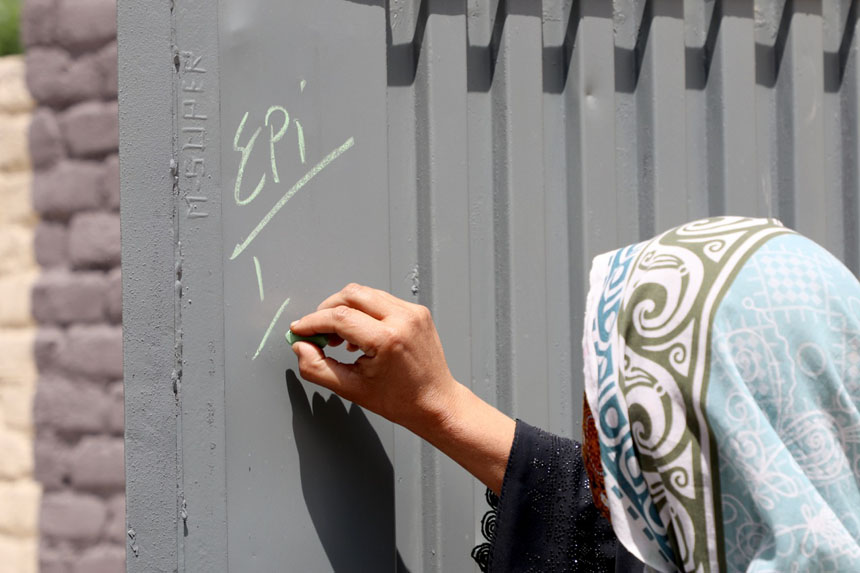 M-SUPER
EPi
1
/